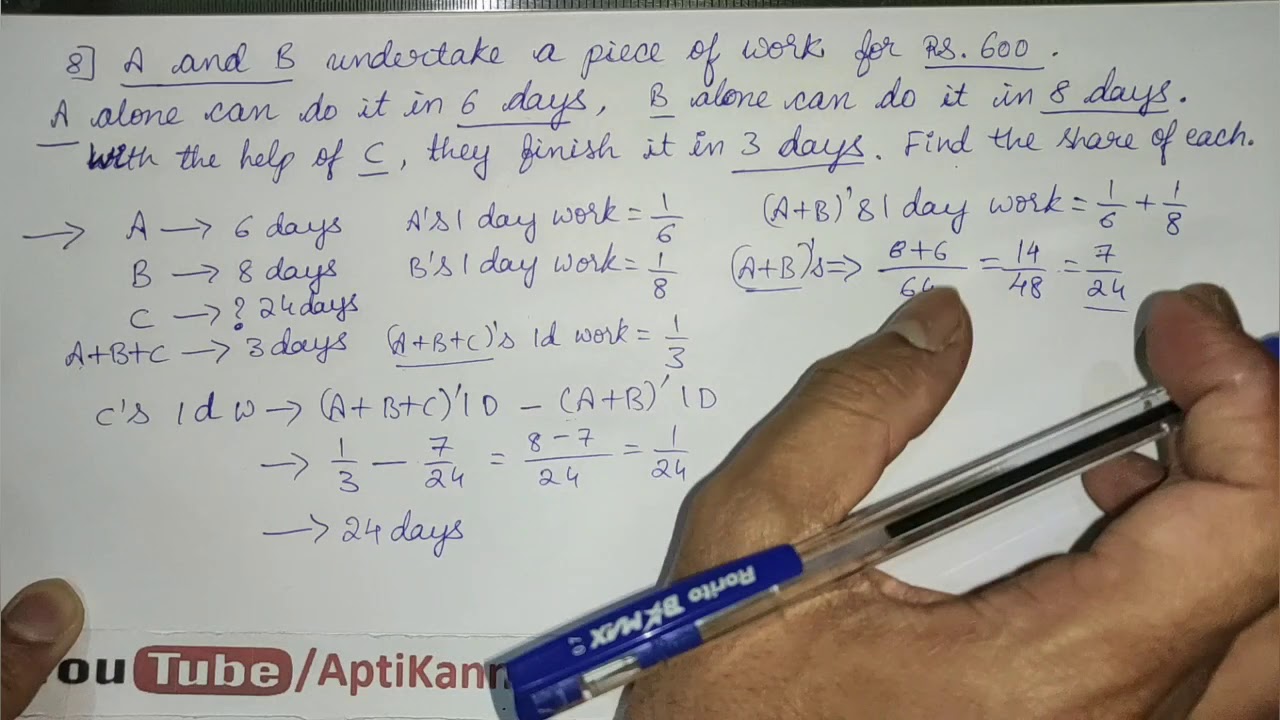 8] A and B undertake a piece of work for Rs. 600.
A alone can do it in 6 days, B alone can do it in 8 days.
With the help of C, they finish it in 3 days. Find the share of each.
→ A → 6 days
B → 8 days
C → ? 24 days
A+B+C → 3 days
A's 1 day work = 1/6
B's 1 day work = 1/8
(A+B+C)'s 1d work = 1/3
(A+B)'s 1 day work = 1/6 + 1/8
(A+B)'s ⇒ 8+6/ = 14/48 = 7/24
C's 1 d w → (A+B+C)' 1D − (A+B)' 1D
→ 1/3 − 7/24 = 8−7/24 = 1/24
→ 24 days
ou Tube/AptiKann
Rorito BKMAX